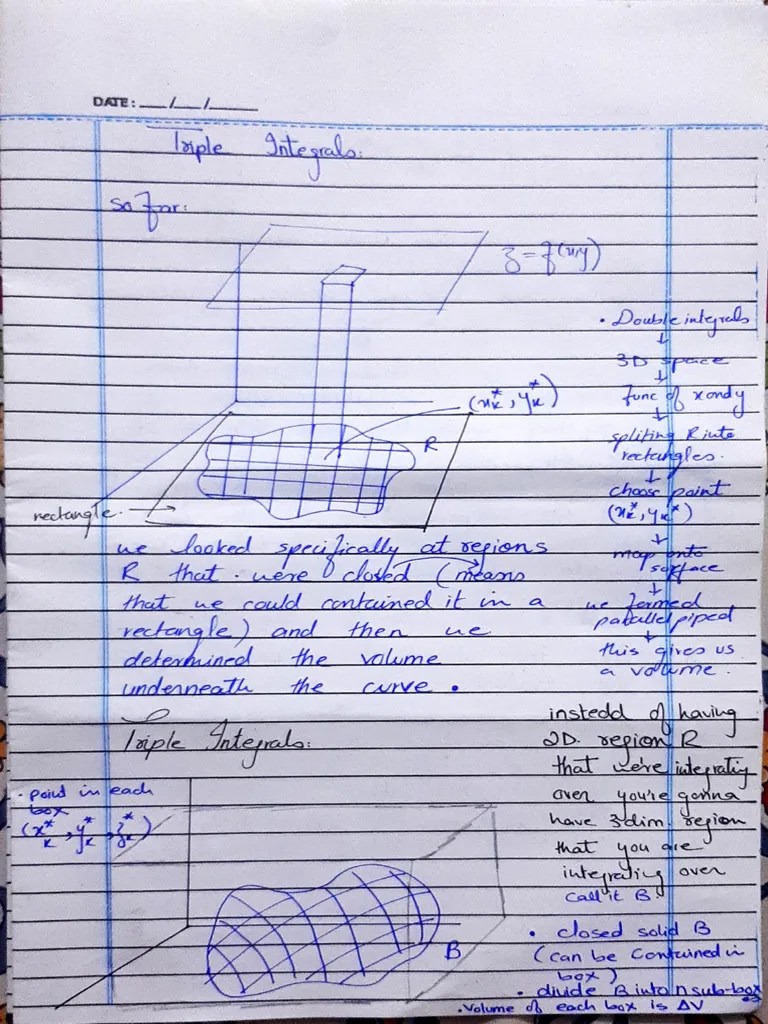 DATE: __/__/____
Triple Integrals:
so far:
z = f(x,y)
(x*k, y*k)
R
rectangle.
• Double integrals
↓
3D space
↓
Func of x and y
↓
spliting R into
rectangles.
↓
choose point
(x*k, y*k)
↓
map onto
surface
↓
we formed
parallelpiped
↓
this gives us
a volume.
we looked specifically at regions
R that were closed (means
that we could contained it in a
rectangle) and then we
determined the volume
underneath the curve.
Triple Integrals:
• point in each
box
(x*k, y*k, z*k)
B
instedd of having
2D region R
that we're integrating
over you're gonna
have 3dim. region
that you are
integrating over
call it B.
• closed solid B
(can be contained in
box)
• divide B into n sub-box
• Volume of each box is ΔV